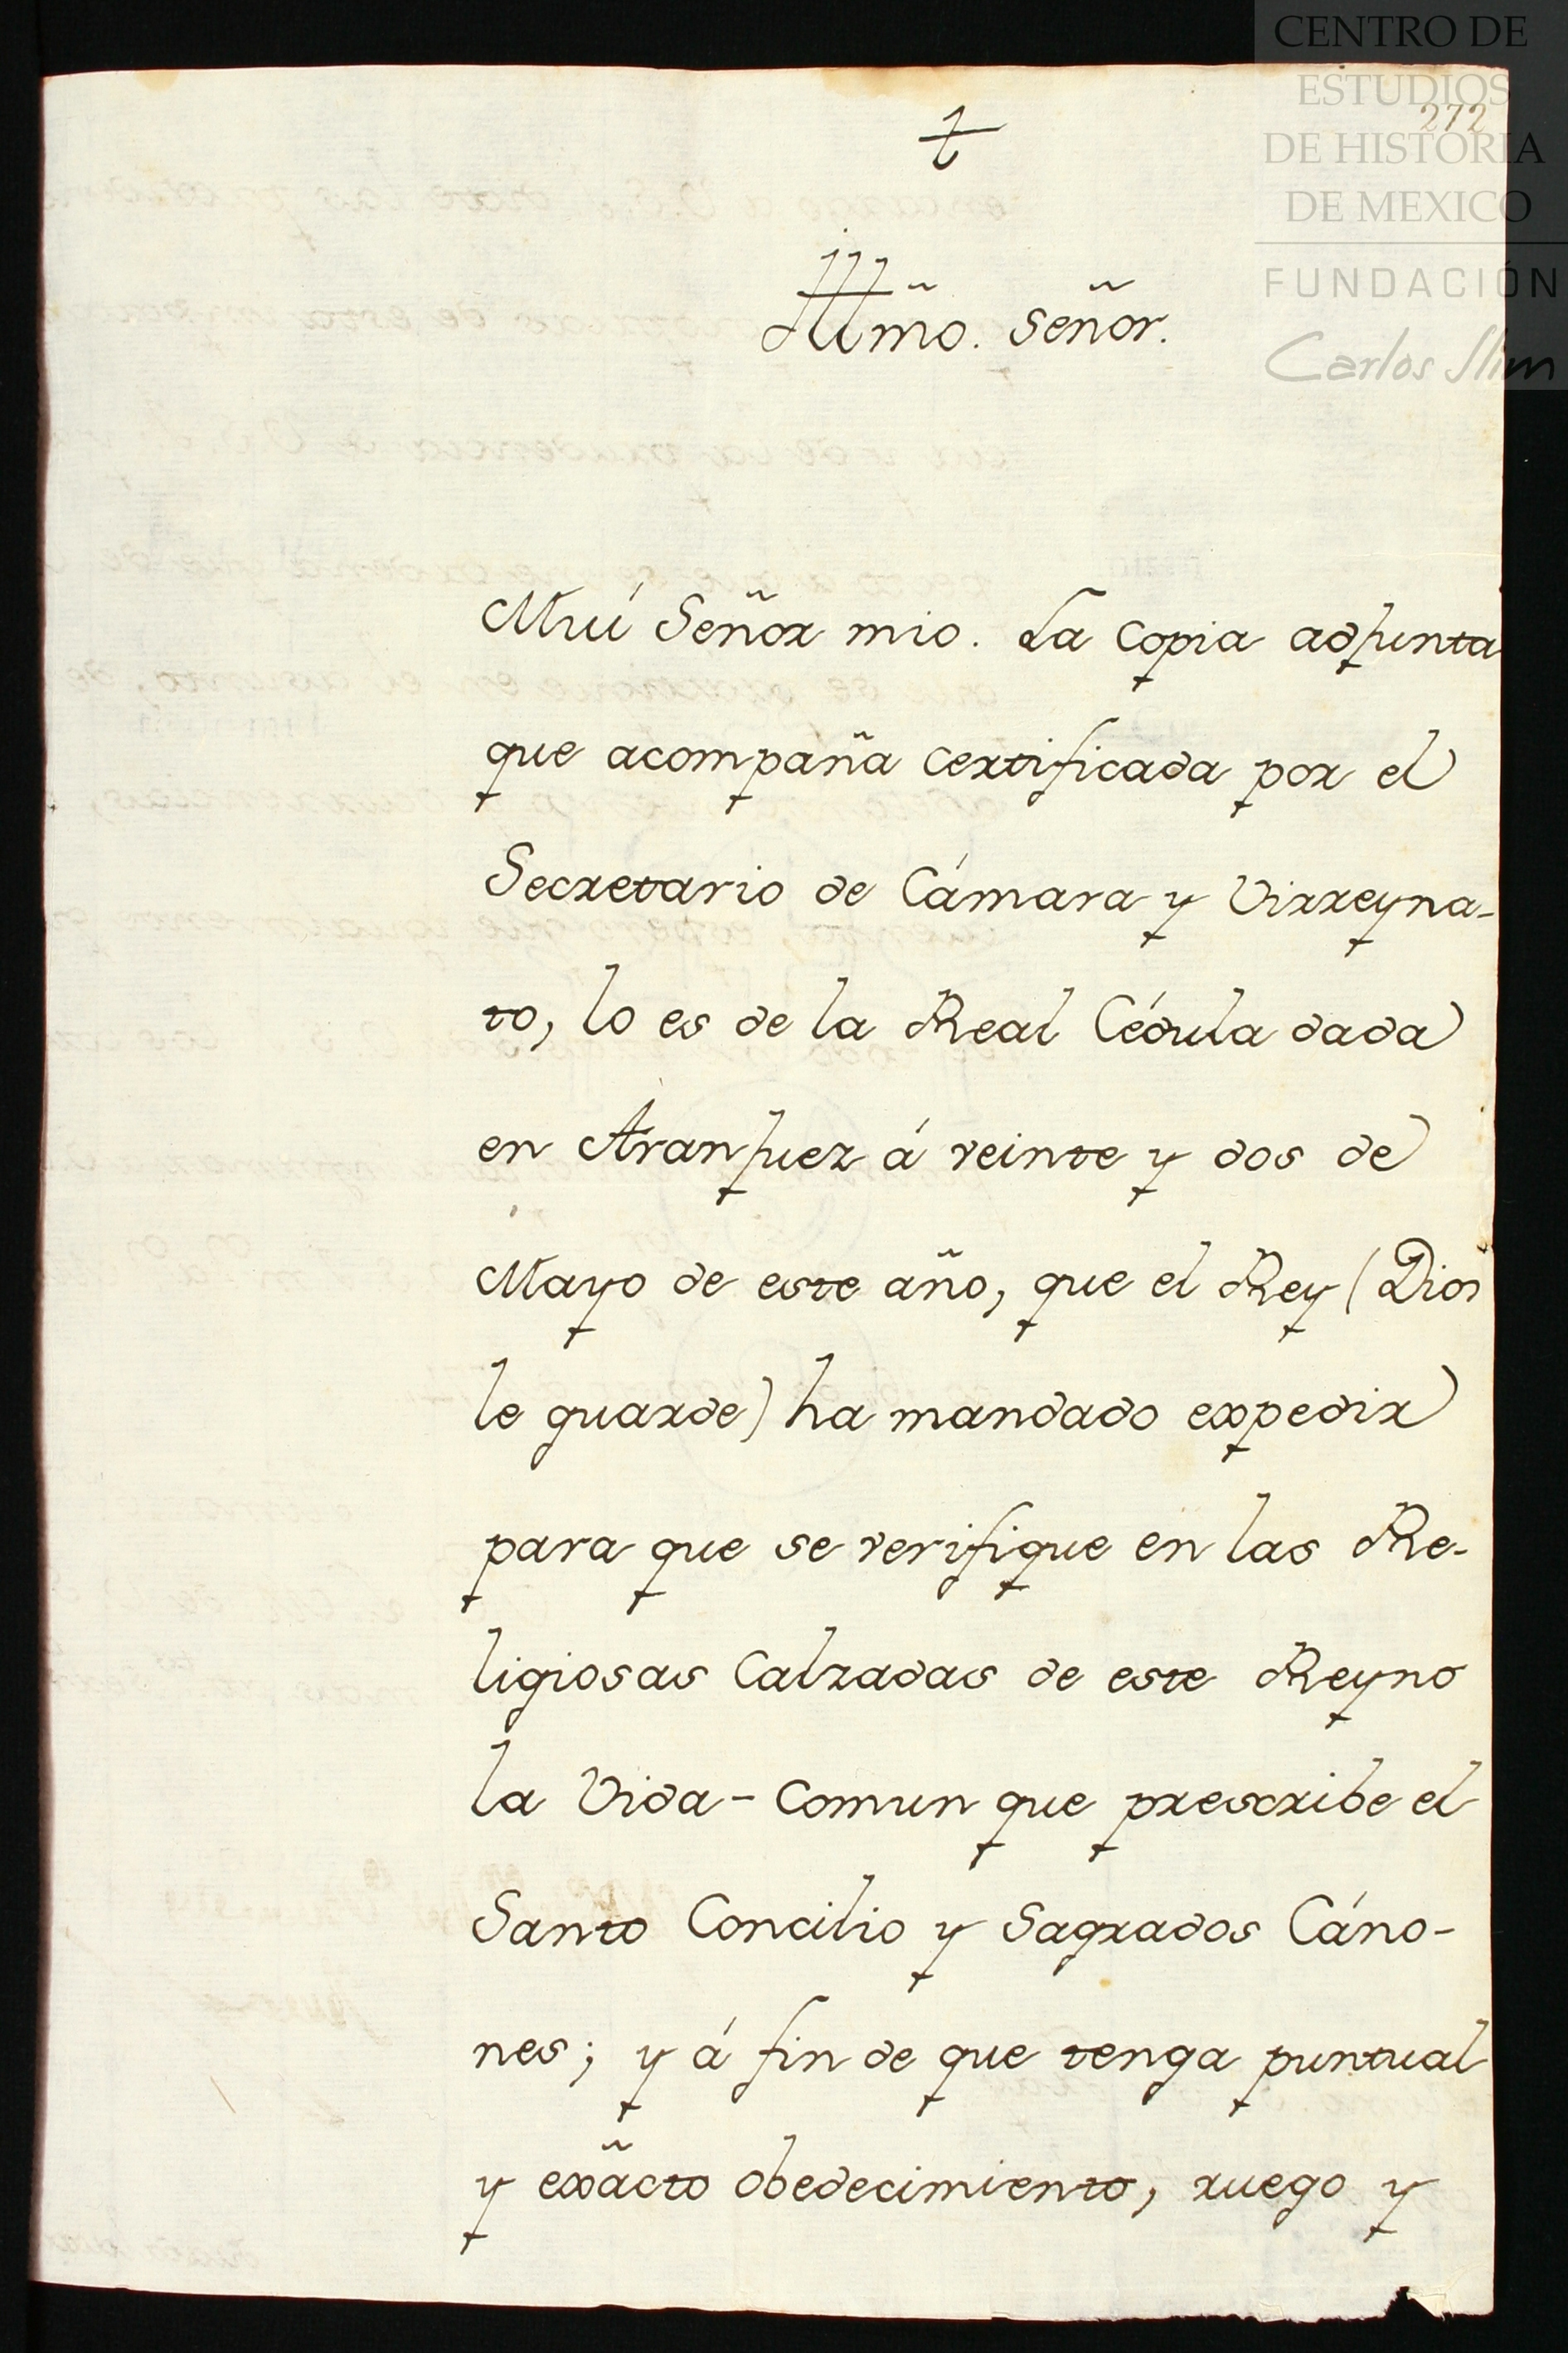 CENTRO DE
ESTUDIOS
272
DE HISTORIA
DE MEXICO
FUNDACIÓN
Carlos Slim
Illm̃o. Señor.
Mui Señor mio. La Copia adjunta
que acompaña certificada por el
Secretario de Cámara y Virreyna-
to, lo es de la Real Cédula dada
en Aranjuez á veinte y dos de
Mayo de este año, que el Rey (Dios
le guarde) ha mandado expedir
para que se verifique en las Re-
ligiosas Calzadas de este Reyno
la Vida-Comun que prescribe el
Santo Concilio y Sagrados Cáno-
nes; y á fin de que tenga puntual
y exãcto obedecimiento, ruego y